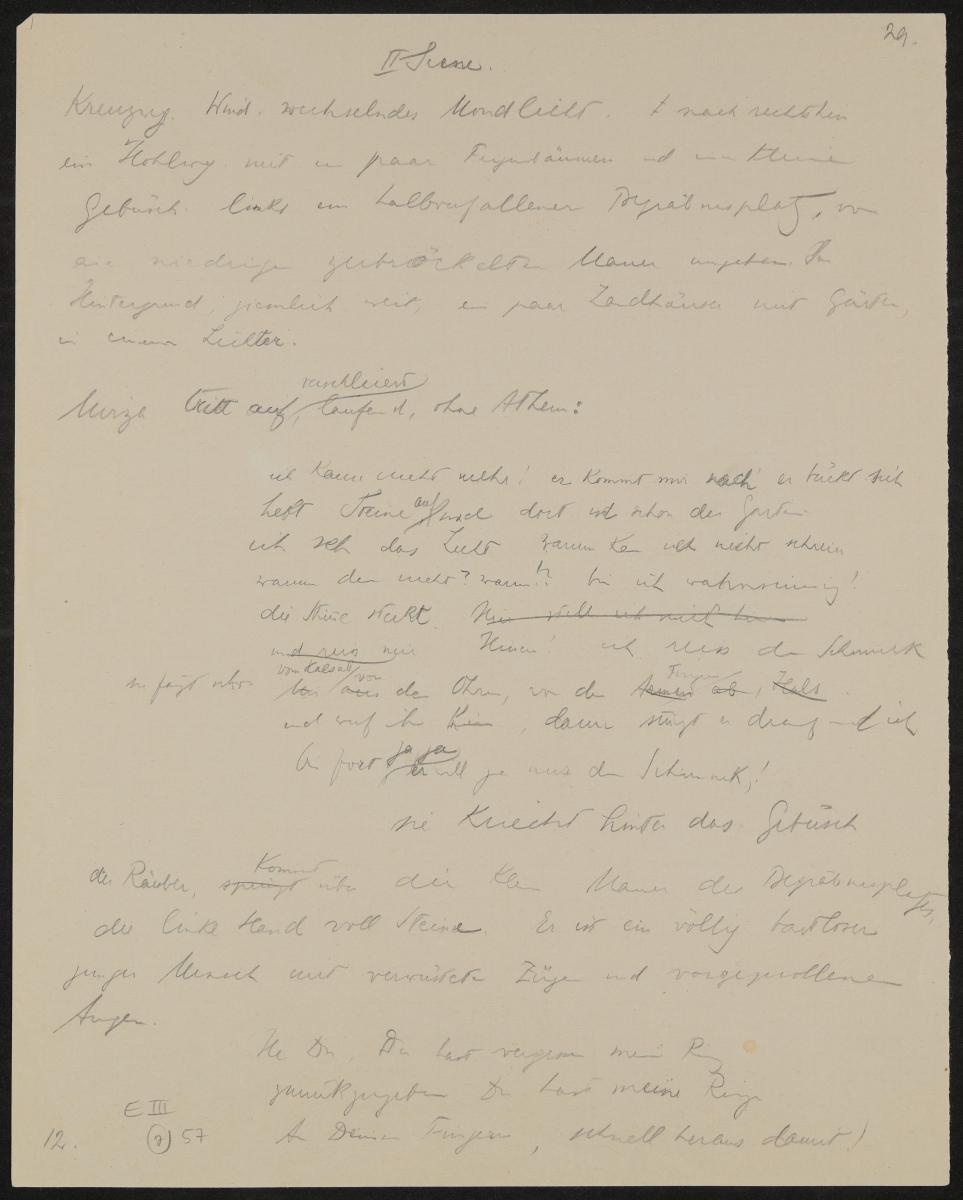 29.
II Scene.
Kreuzweg. Wind. wechselndes Mondlicht. nach rechts hin
ein Hohlweg mit ein paar Feigenbäumen und
Gebüsch. links ein halbverfallener Begräbnisplatz, von
eine niedrigen zerbröckelten Mauer umgeben. Im
Hintergrund, ziemlich weit, ein paar Landhäuser mit Gärten,
in einem Lichter.
verschleiert
Mirza tritt auf, laufend, ohne Athem:
ich kann nicht mehr! er kommt mir nach er bückt sich
hebt Steine auf und dort ist schon der Garten
ich seh das Licht warum kan ich nicht schrein
warum den nicht? warum!? bin ich wahnsinnig!
die Steine
und Hinein! ich reiss den Schmuck
vom Hals ab von Fingern
sie fängt schon aus den Ohren, von den Armen ab, Hals
und werf ihn hin, dann stürzt er drauf und ich
bin fort ja ja er will ja nur den Schmuck!
sie kriecht hinter das Gebüsch
kommt
der Räuber, springt über die kleine Mauer des Begräbnisplatzes,
die linke Hand voll Steine. Er ist ein völlig bartloser
junger Mensch mit verwüsteten Zügen und vorgequollenen
Augen.
He Du, Du hast vergessen meine Ringe
zurückzugeben Du hast meine Ringe
An Deinen Fingern, schnell heraus damit!
E III
12. 57